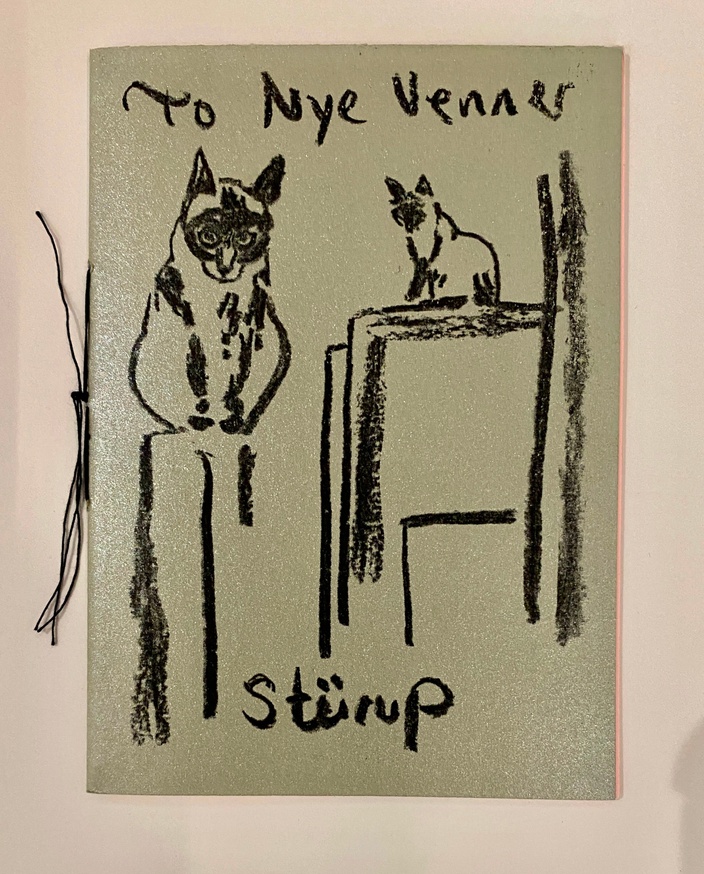 To Nye Venner
Stürup